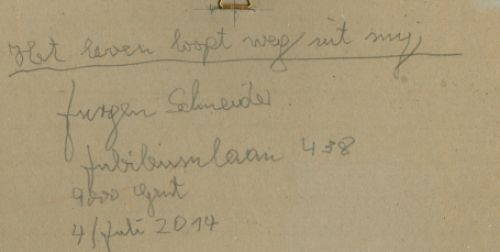 Het leven loopt weg uit mij,
Jurgen Schneider
Jubileumlaan 438
9000 Gent
4/Juli 2014